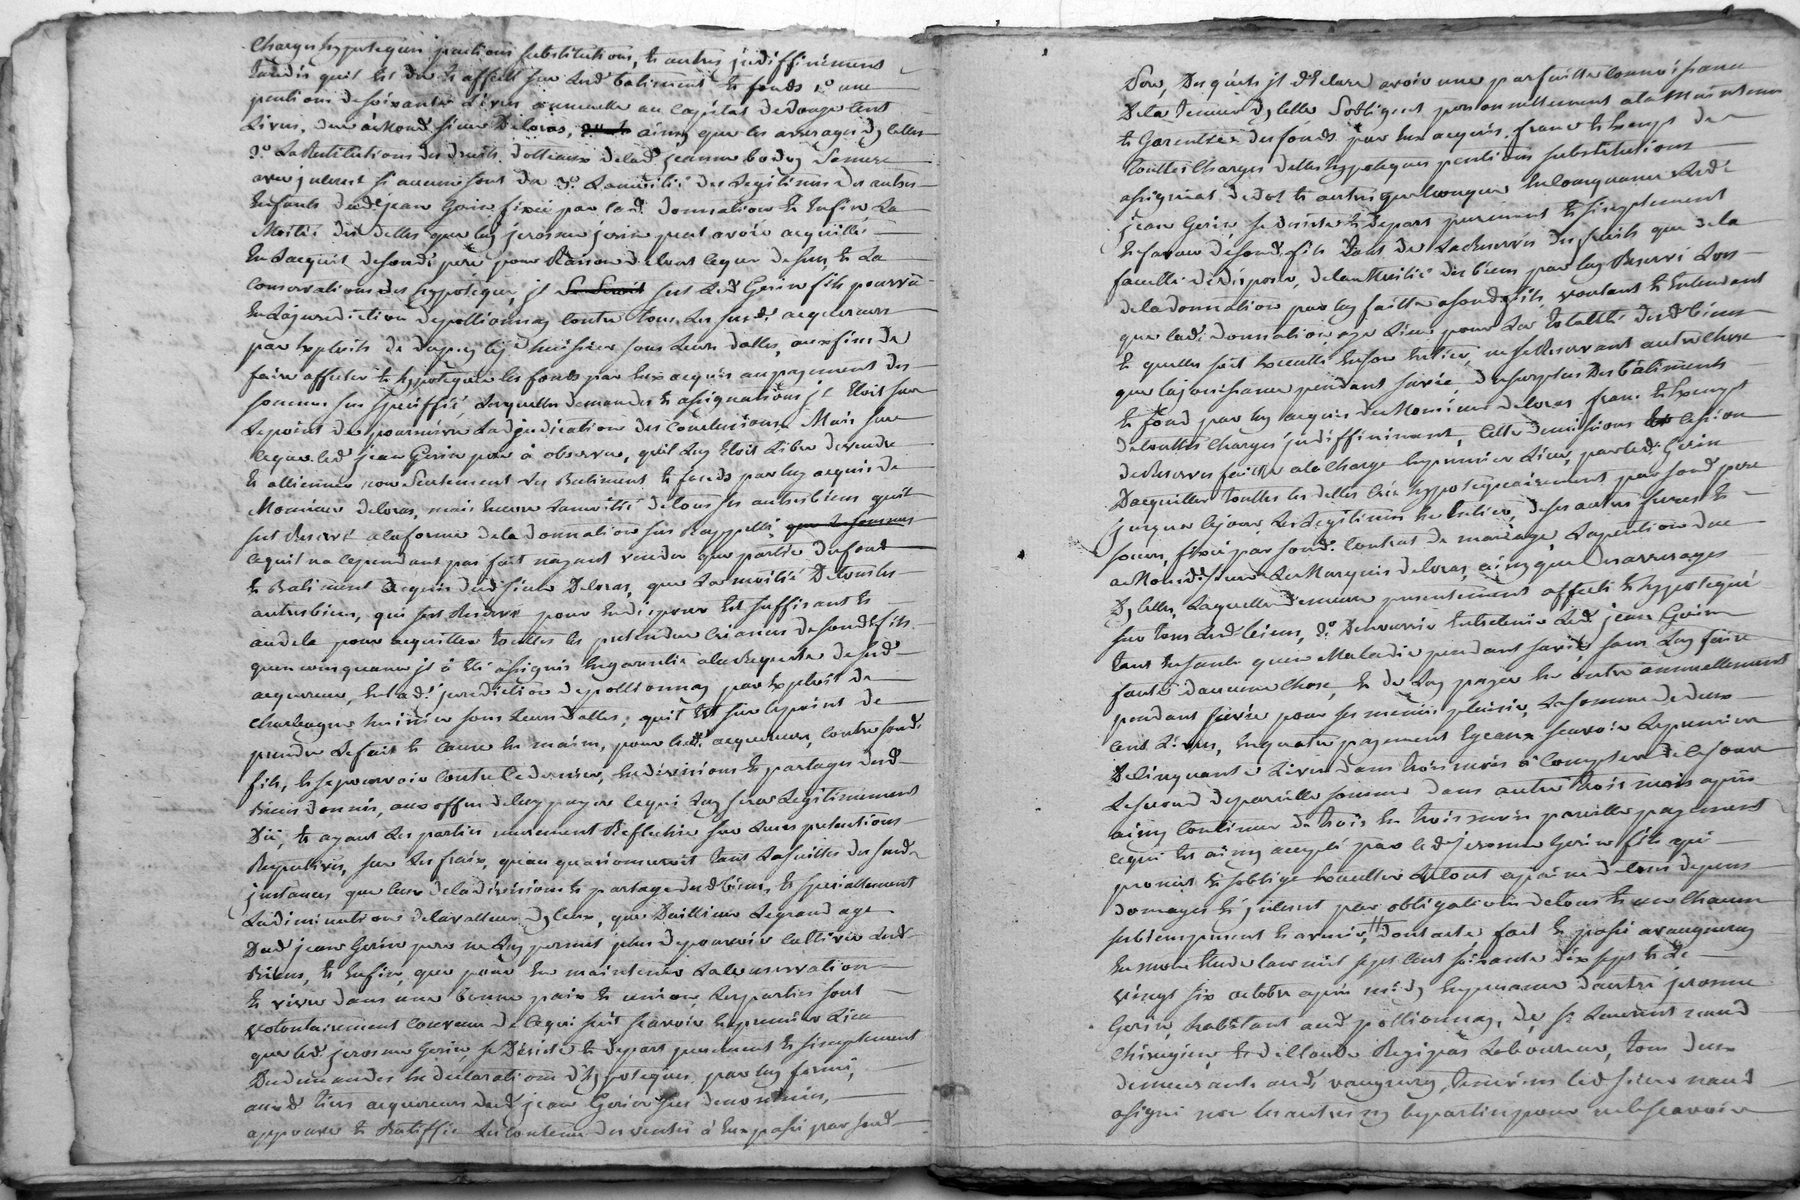 Charges hypoteques pentions substitutions, et autres jndiffiniment
tandis quil est du et affecté sur lesd batiment et fonds 1º une
pentions de soixante Livres annuelle au capital de douze cent
Livres, due a mond sieur Deloras, ainsy que les arrerages dycelles
2º La Restitutions des droits dotteaux de lade jeanne Sa mere
avec jnterest si aucune sont du 3º La moitié des Legitimes des autres
Enfants dud jean Gerin fixée par lad. donnation Et Enfin, La
Moitié des dettes que luy jerosme jerin peut avoir acquitté
En Lacquit de sond pere pour Raison de tout ce que dessus, et La
Conservations des hypoteque, jl sest Led Gerin fils pourvû
En La jurediction depollionnay Contre tous Les susd. acquereurs
par Exploits de huissier sous Leurs dattes, aux fins de
faire affecter et hypotequer les fonds par Eux acquis au payement des
sommes sus speciffié, desquelles demandes et assignations jl Etoit sur
Le point de poursuivre Ladjudication des Conclusions. Mais sur
ce que led jean Gerin pere à observer, quil Luy Etoit Libre de vendre
et allienner non seulement Les Batiment et fonds par luy acquis de
Monsieur deloras, mais Encore La moitié de tous ses autres biens quil
sest Reservé a la forme de la donnation sus Rappellé que Les sommes
cequil na cependant pas fait nayant vendu que partie du fond
et Batiment acquis dud sieur Deloras, que La moitié De tous les
autres biens, qui sest Reservé pour En disposer Est suffisant et
au dela pour acquitter touttes les pretendue criances de sond fils
quen consequance jl a Eté assignés En garentie a la Requeste desd
acquereur, En lad. jurediction depollionnay par Exploit de
Charbogne huissier sous Leurs dattes, quil Est sur le point de
prendre Le fait et Cause En mains, pour lesd. acquereur, contre sond
fils, et se pourvoir Contre Ce dernier, En divisions Et partages desd
Biens donnés, aux offres de luy payer ce qui Luy sera Legitimement
Dû, et ayant Les parties murement Reflechie sur Leurs pretentions
Respectives, sur Les fraix, quen quarionneroit tant La suittes des susd
jnstances que Ceux de la divisions et partage desd biens, Et specialement
La diminutions de la valleur dyceux, que Dailleurs Le grand age
Dud jean Gerin pere ne Luy permet plus de pouvoir Cultiver Lesd
Biens, et Enfin, que pour En maintenir La Conservation
et vivre dans une bonne paix Et union, Les parties sont
volontairement convenu de Ce qui suit scavoir En premier Lieu
que led. jerosme Gerin, se Desiste et depart purement et simplement
Des demandes En declarations dhypoteques par luy formé,
auxd tiers acquereurs dud jean Gerin sus denommés,
approuve et Ratiffie Le Contenu des ventes à Eux passé par sond
Pere, Desquels jl declare avoir une parfaitte Connoissance
De la teneur dycelle Soblige personnellement a la Maintenue
et Garentie des fonds par Eux acquis franc et Exempt de
touttes Charges dettes hypoteques pentions substitutions
assignat de dot et autres quelconque En Consequance Led.
jean Gerin se desiste et depart purement et simplement
En faveur de sond. fils tant de La Reserve des fruits que de la
faculté de disposer, de la Moitié des biens par luy Reservé Lors
de la donnation par luy faitte a sond. fils, voulant et Entendant
que lad. donnation aye Lieu pour La totallité desd biens
et quelle soit Executté En son Entier, ne se Reservant autre Chose
que la jouissance pendant sa vie, du surplus Des batiments
et fond par luy acquis de Monsieur deloras franc et Exempt
de touttes charges jndiffiniment, Cette demissions Et Cession
de Reserve faitte a la Charge En premier Lieu, par led. Gerin
Dacquitter touttes les dettes Créé hypotequairement par sond pere
jusque a ce jour Les Legitimes En Entier, de ses autres freres et
soeurs, fixé par sond. Contrat de mariage La pention due
a Mond. Sieur Le Marquis deloras, ainsy que Les arrerages
Dycelles, Laquelle demeure presentement affecté Et hypotequé
sur tous Lesd biens, 2º De nourrir Entretenir Led. jean Gerin
tant En santé quen Maladie pendant sa vie, sans Luy faire
fautes daucune Chose, Et de Luy payer En outre annuellement
pendant sa vie pour ses menus plaisir, La somme de deux
Cent Livres, En quatre payement Egeaux scavoir Le premier
De Cinquante Livres dans trois mois à Compter de ce jour
Le second de pareille somme dans autre trois mois apres
ainsy Continuer de trois En trois mois pareille payement
Ce qui Est ainsy accepté par led jerosme Gerin fils qui
promet Et soblige Executter Le tout a peine de tous depens
domages Et jnterest par obligations de tous et un Chacun
ses biens present et avenir, dont acte fait Et passé a vaugneray
En notre Etude Lan mil sept Cent soixante dix sept Et Le
vingt six octobre apres midy En presance dautre jerosme
Gerin, habitant aud pollionnay, de sr. Laurent naud
chirurgien, et de Claude Regipas Laboureur, tous deux
demeurants aud. vaugneray, temoins led sieur naud
assigné non Les autres ny les parties pour ne le scavoir